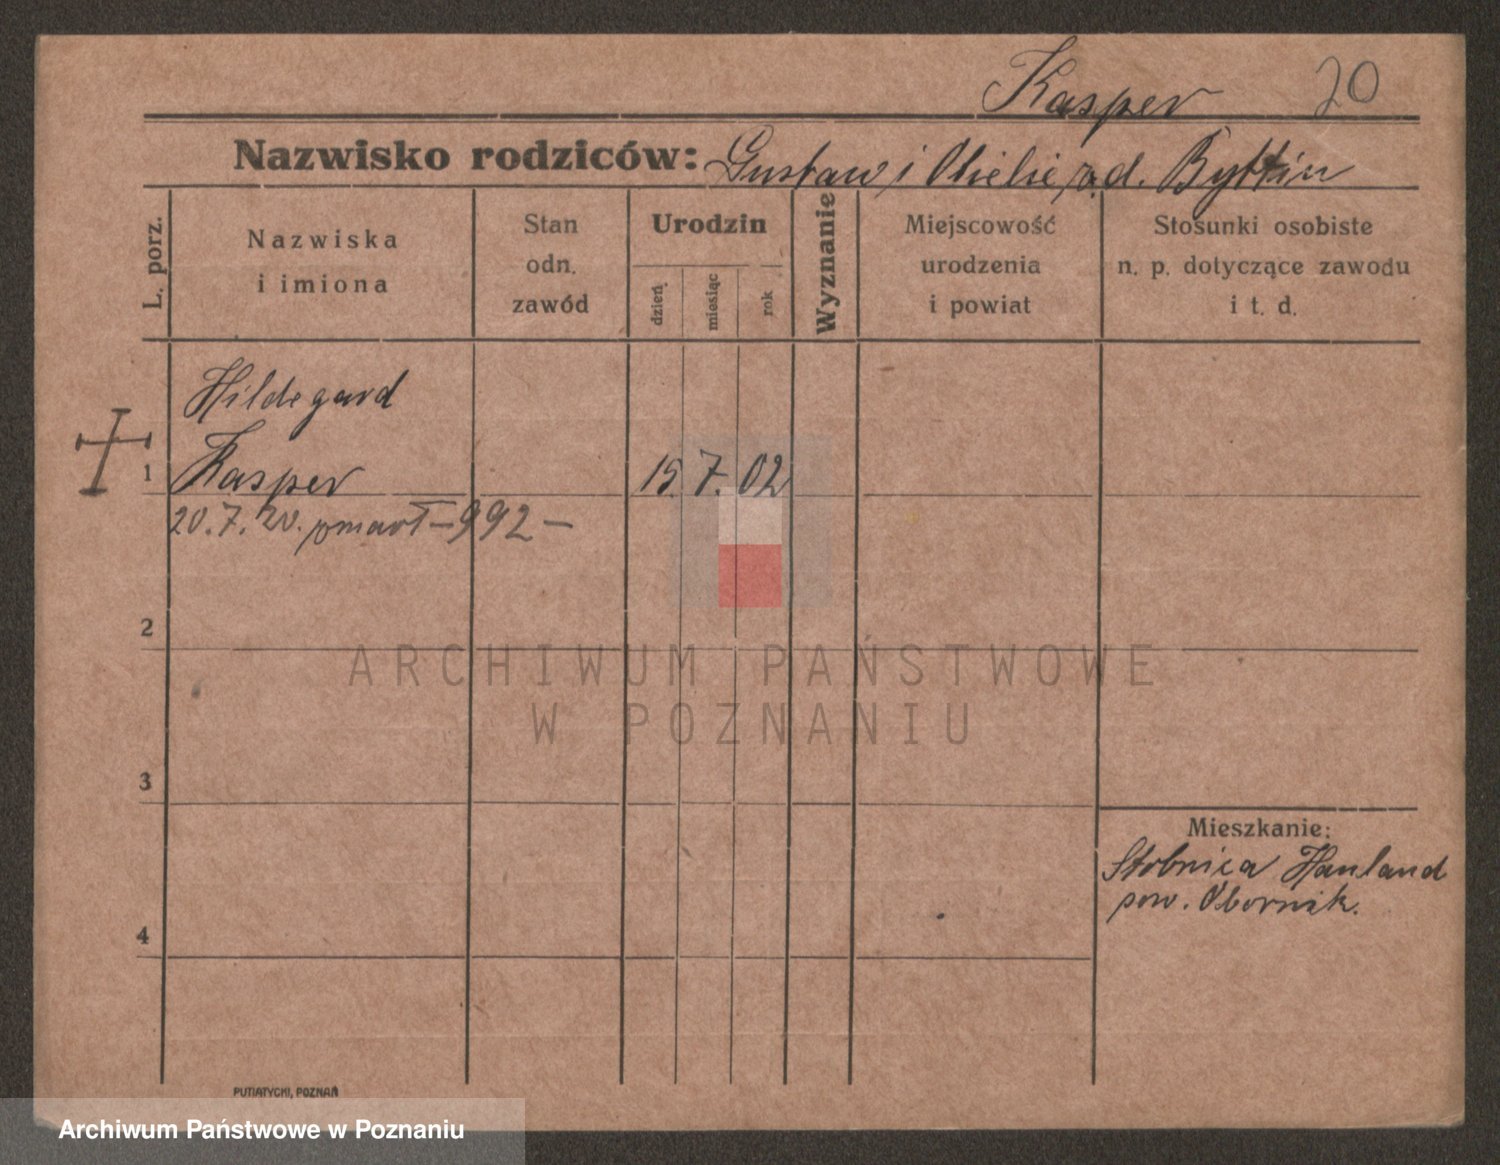 Kasper 20
Nazwisko rodziców: Gustaw i Otielie z d. Byttin
L. porz.
Nazwiska i imiona
Stan odn. zawód
Urodzin
dzień
miesiąc
rok
Wyznanie
Miejscowość urodzenia i powiat
Stosunki osobiste n. p. dotyczące zawodu i t. d.
Hildegard
1 Kasper 15. 7. 02
20. 7. 20. zmarł – 992 –
2
3
4
Mieszkanie:
Stobnica Hauland
pow. Obornik.
PUTIATYCKI, POZNAŃ
ARCHIWUM PAŃSTWOWE
W POZNANIU
Archiwum Państwowe w Poznaniu